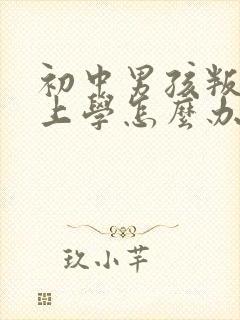 初中男孩叛
上學怎麼办
玖小芊